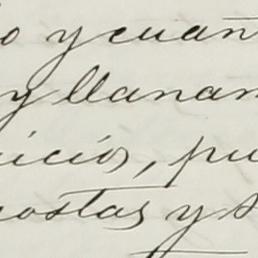 o y cuan
y llanam
uicio, pu
costas y s